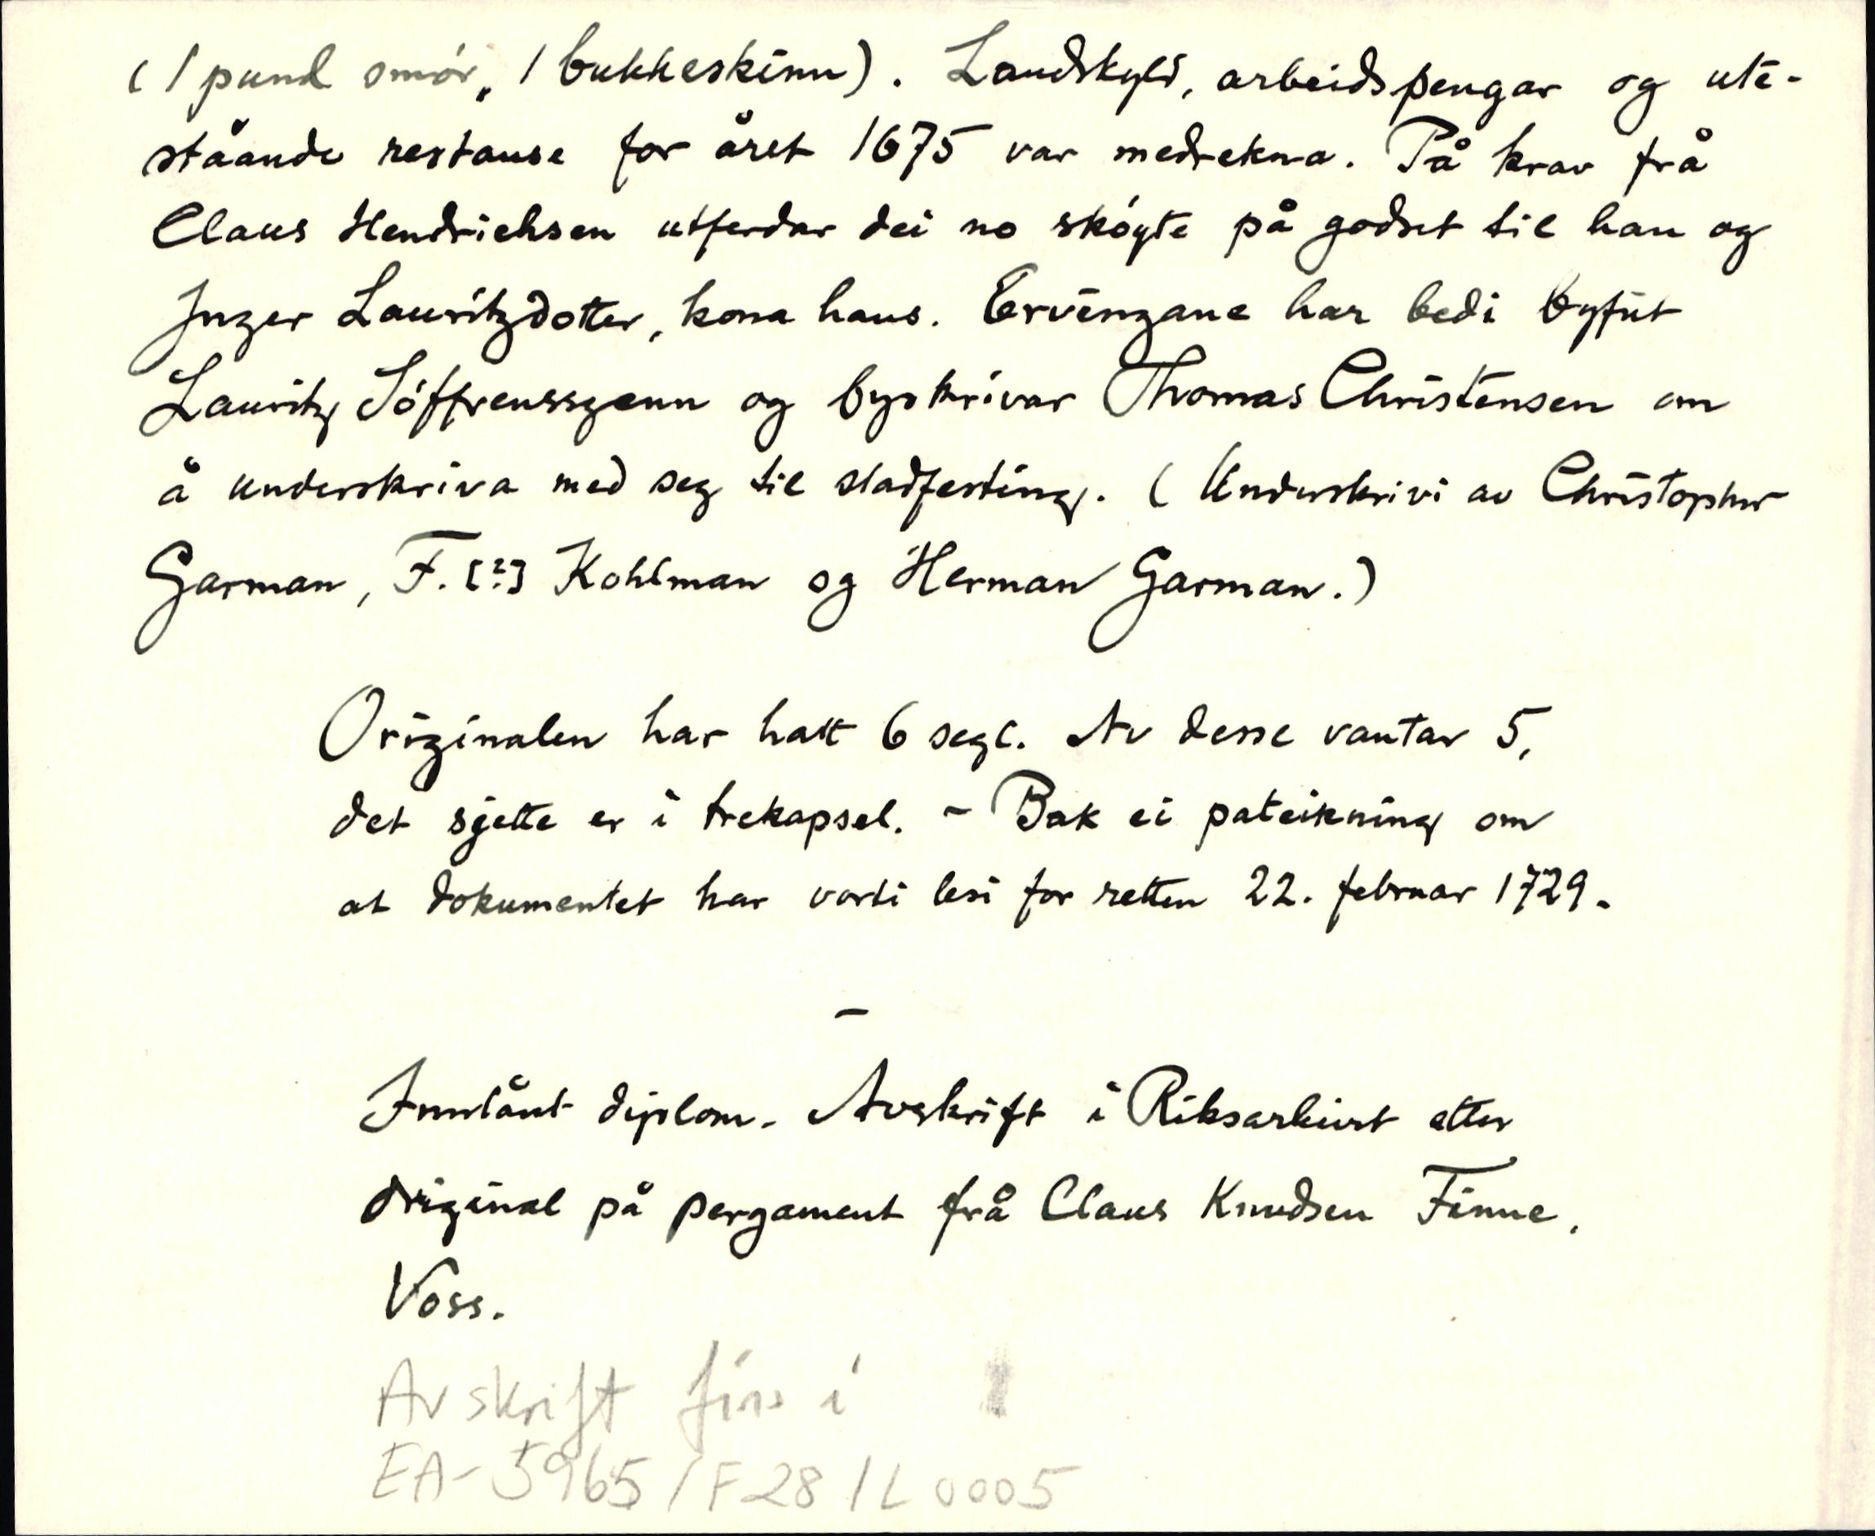 (1 pund smör, 1 bukkeskinn). Landskyld, arbeidspengar og ute-
ståande restanse for året 1675 var medrekna. På krav frå
Claus Hendrichsen utferdar dei no skóyte på godset til han og
Inger Lauritzdotter, kona hans. Ervingane har bedi byfut
Lauritz Söffrensszenn og byskrivar Thomas Christensen om
å underskriva med seg til stadfesting. (Underskrivi av Christopher
Garman, F. [?] Kohlman og Herman Garman.)
Originalen har hatt 6 segl. Av desse vantar 5,
det sjette er i trekapsel. - Bak ei påteikning om
at dokumentet har vorti lesi for retten 22. februar 1729.
-
Innlånt diplom. Avskrift i Riksarkivet etter
original på pergament frå Claus Knudsen Finne,
Voss.
Avskrift fins i
EA-5965/F28/L0005